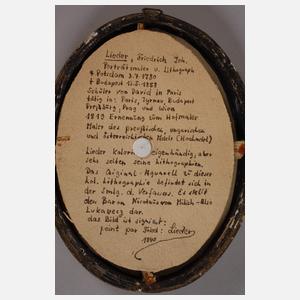 Lieder, Friedrich Joh.
Porträtmaler u. Lithograph
* Potsdam 3.7.1780
† Budapest
Schüler von David in Paris
tätig in: Paris, Tyrnau, Budapest
Preßburg, Prag und Wien
1819 Ernennung zum Hofmaler
Maler des preußischen, ungarischen
und österreichischen Adels (Hochadel)
Lieder kolor. eigenhändig, aber
sehr selten seine Lithographien.
Das Original-Aquarell zu dieser
kol. Lithographie befindet sich in
der Smlg. d. Verfassers. Es stellt
den Baron Nicolaus von
dar.
das Bild ist signiert:
peint par Fréd: Lieder
1840